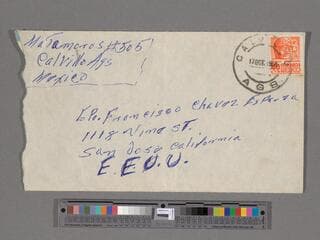 Matamoros #505
Calvillo Ags
Mexico
CALV
17 DIC
AGS
Francisco Chavez Esparza
1118 Vine ST.
San Jose California
E.E.U.U.